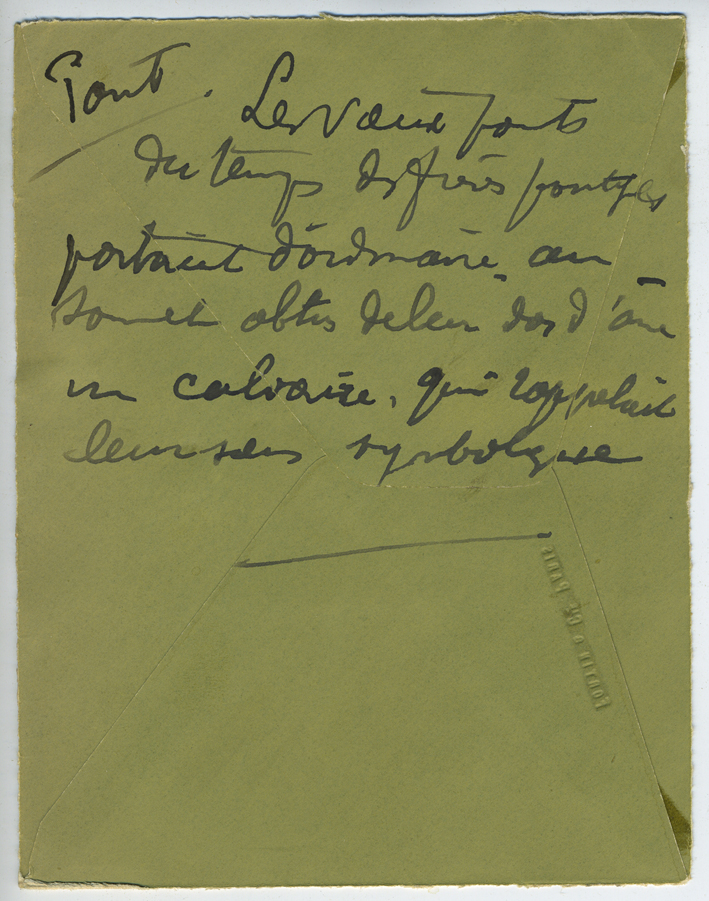 Pont. Les vieux ponts
du temps des frères pontifes
portaient d'ordinaire, au
sommet obtus de leur dos d'âne
un calvaire, qui rappelait
leur sens symbolique
FORTIN & Cie PARIS